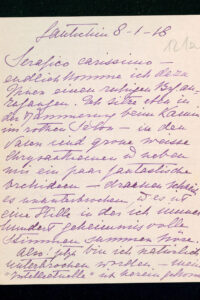 Lautschin 8-1-18
121a
Serafico carissimo –
endlich komme ich dazu
Ihnen einen ruhigen Brief an-
zufangen. Ich sitze eben in
der Dämmerung beim Kamin
im rothen Salon – in den
Vasen sind grosse weisse
Chrysanthemen u neben
mir ein paar fantastische
Orchideen – draussen schneit
es ununterbrochen, u es ist
eine Stille in der ich immer
hundert geheimnisvolle
Stimmen summen höre.
Also jetzt bin ich natürlich
unterbrochen worden –
"intellectuelle" ist herein gekommen